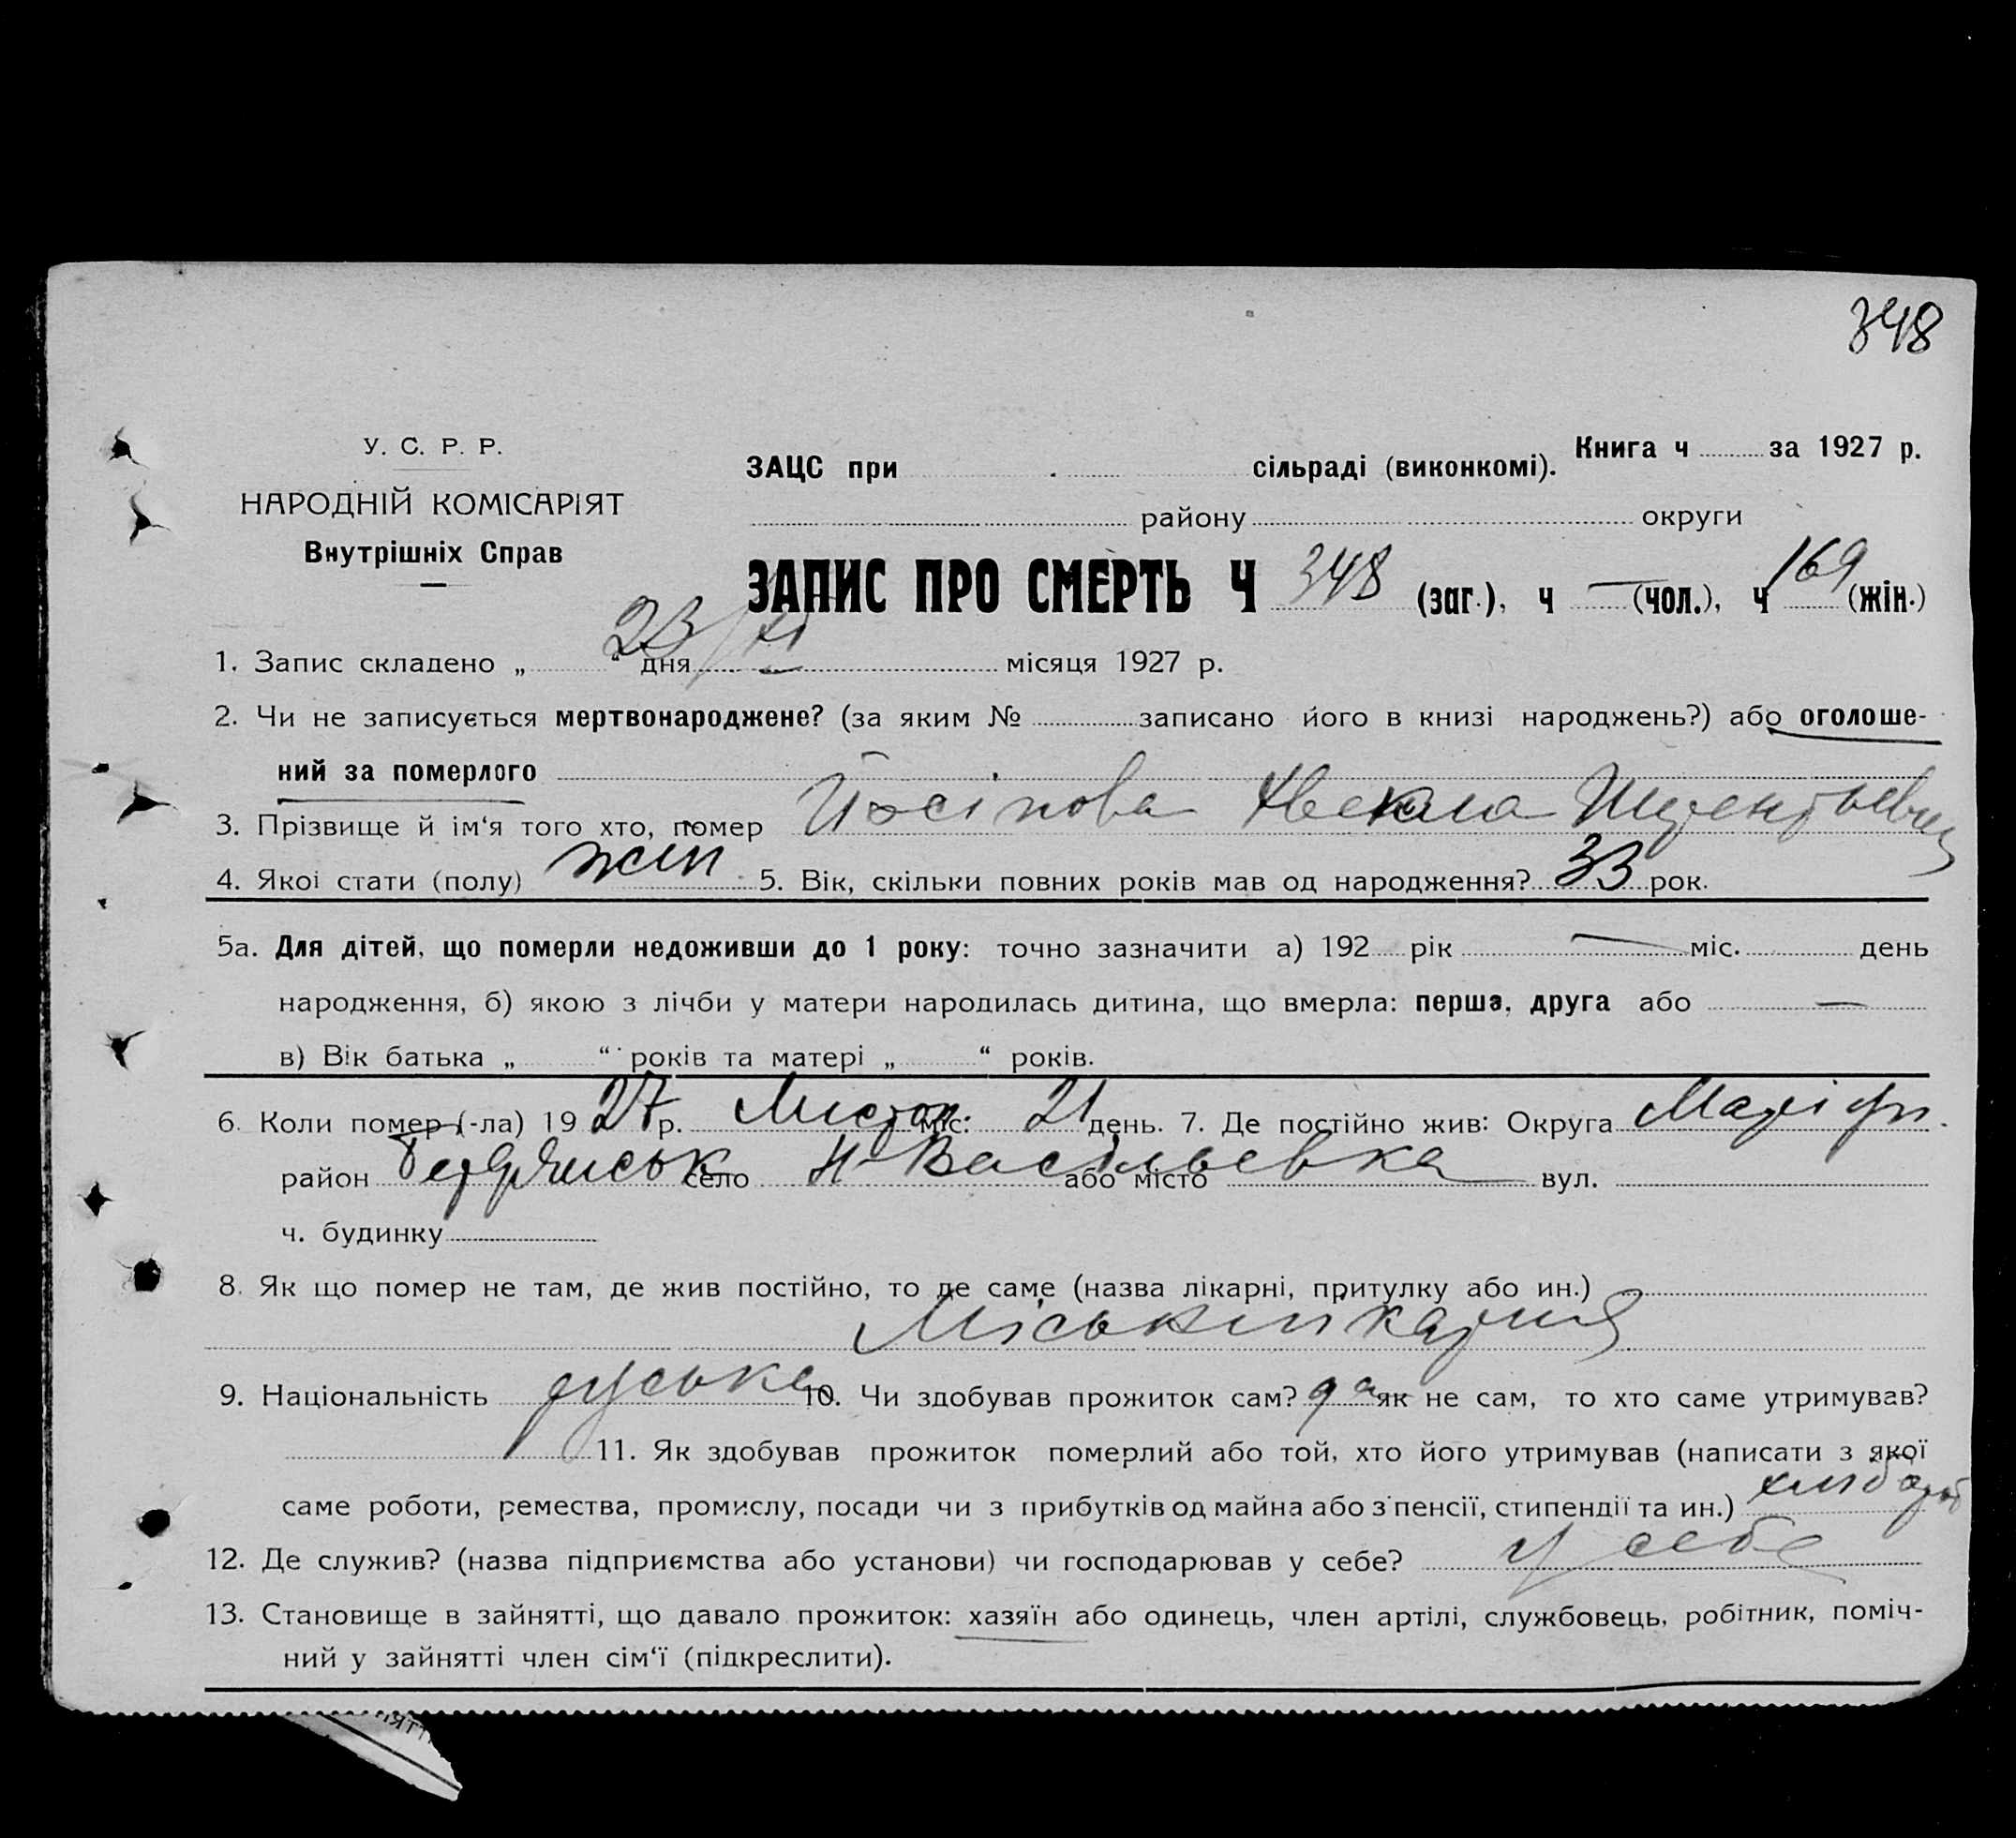 348
У. С. Р. Р.
НАРОДНІЙ КОМІСАРІЯТ
Внутрішніх Справ
Книга ч за 1927 р.
ЗАЦС при сільраді (виконкомі).
району округи
ЗАПИС ПРО СМЕРТЬ Ч 348 (заг.), ч — (чол.), ч 169 (жін.)
1. Запис складено „ 23 “ дня / XI місяця 1927 р.
2. Чи не записується мертвонароджене? (за яким № записано його в книзі народжень?) або оголоше-
ний за померлого
3. Прізвище й ім‘я того хто, помер Йосіпова
4. Якої стати (полу) жін 5. Вік, скільки повних років мав од народження? 33 рок.
5а. Для дітей, що померли недоживши до 1 року: точно зазначити а) 192 рік — міс. день
народження, б) якою з лічби у матери народилась дитина, що вмерла: перша, друга або —
в) Вік батька „ “ років та матері „ “ років.
6. Коли помер (-ла) 1927 р. Листоп. міс. 21 день. 7. Де постійно жив: Округа Маріюп.
район Бердянськ село Н-Васільевка або місто вул.
ч. будинку
8. Як що помер не там, де жив постійно, то де саме (назва лікарні, притулку або ин.)
Міськлікарня
9. Національність руська 10. Чи здобував прожиток сам? да як не сам, то хто саме утримував?
11. Як здобував прожиток померлий або той, хто його утримував (написати з якої
саме роботи, ремества, промислу, посади чи з прибутків од майна або з пенсії, стипендії та ин.) хлібороб
12. Де служив? (назва підприємства або установи) чи господарював у себе? у себе
13. Становище в зайнятті, що давало прожиток: хазяїн або одинець, член артілі, службовець, робітник, поміч-
ний у зайнятті член сім‘ї (підкреслити).